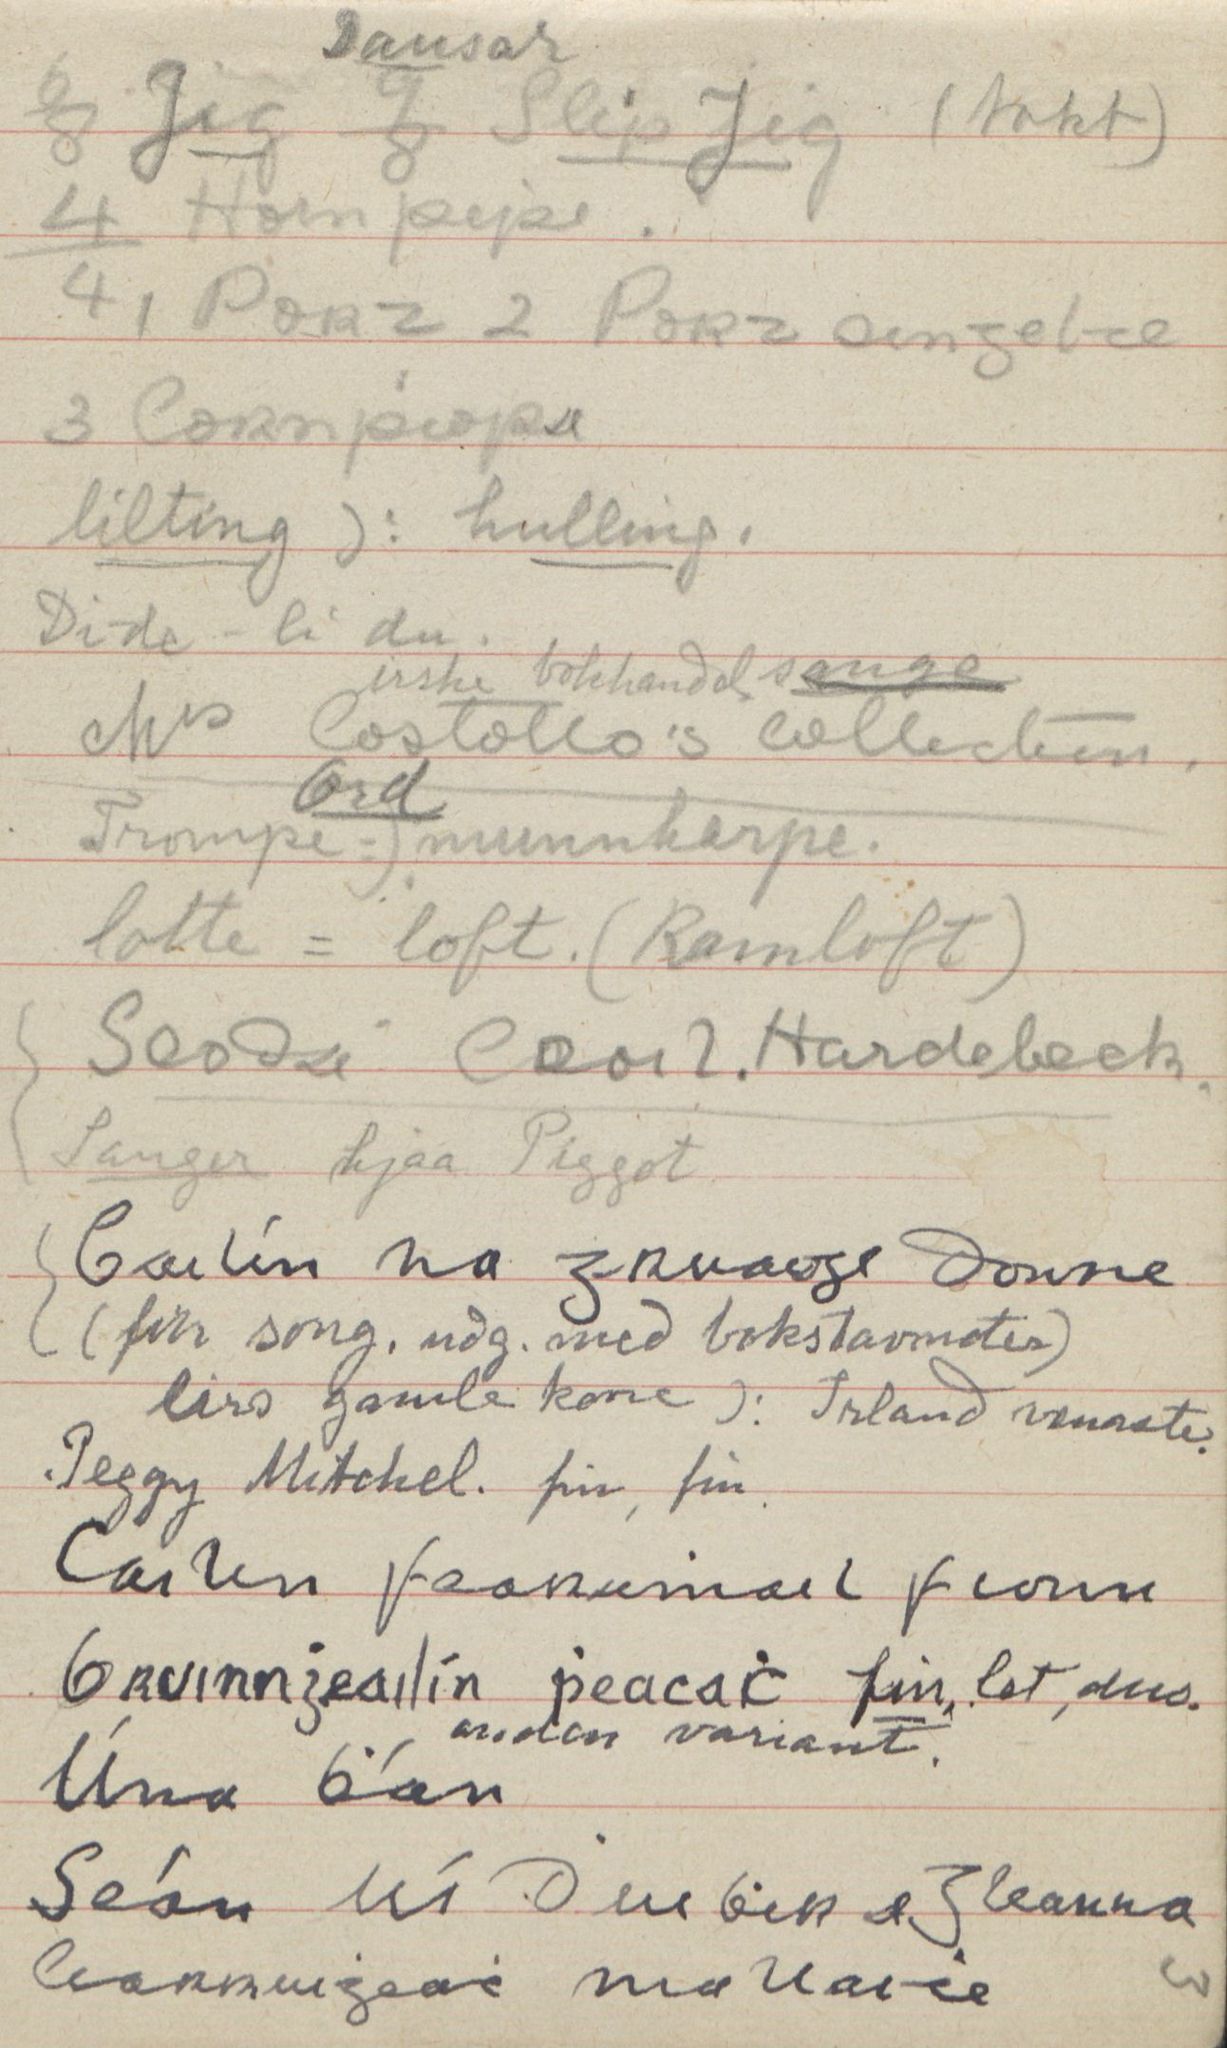 Dansar
6/8 Jig 9/8 Slip Jig (takt)
4/4 Hornpipe.
1 Porz 2 Porz singelte
3 Cornpiopa
lilting ): hulling.
Di-de-li du.
irske bokhandel sange
Mrs Costello's collection.
Ord
Trompe =) munnharpe.
lotte = loft. (Ramloft)
Seoda Ceoil. Hardebeck.
Sanger hjaa Piggot
Cailín na gruaige Doinne
(fin song, udg. med bokstavnoter)
lirs gamle kone ): Irland
Peggy Mitchel. fin, fin.
Cailín fearamail fionn
bruinngeailín ṗeacaċ fin, let, dus.
anden variant.
Úna ḃán
Seán Uí Duiḃir a Gleanna